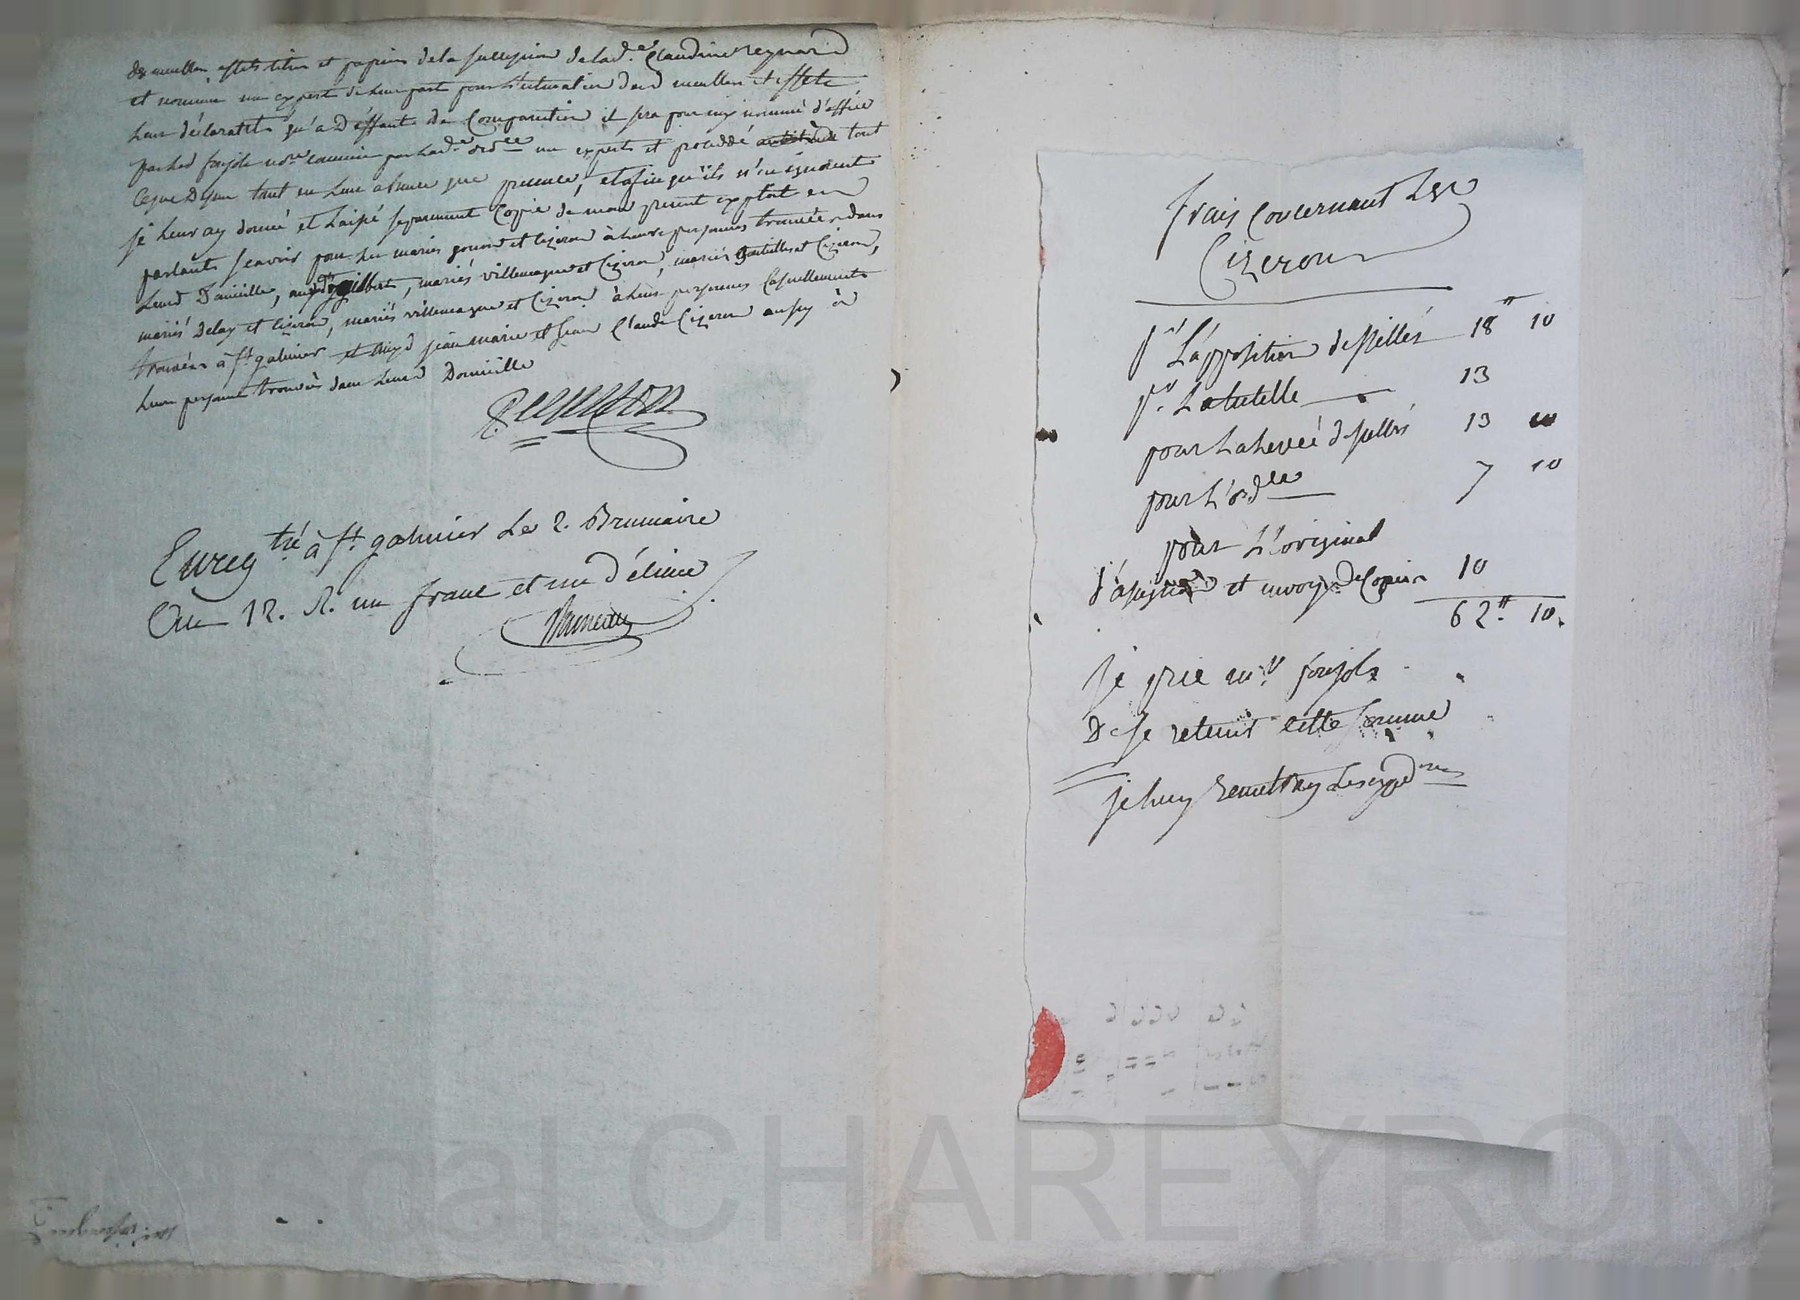 des meubles effets titres et papiers de la succession de lad.e Claudine Reynard
et nommé un expert de leur part pour l'estimation desd meubles et effets
leur déclarant qu'a Déffaut de Comparution il sera pour eux nommé d'office
par led foujols no.re commis par lad.e ord.ce un expert et procédé tout
Ce que Dessus tant en leur absence que presence, et afin qu'ils n'en ignorent
je leur ay donné et laissé separement Copie de mon present exploit en
parlants scavoir pour les mariés et Cizeron à leurs personnes trouvées dans
leurd Domicille, mariés villemagne et Cizeron, mariés et Cizeron,
mariés Delay et Cizeron, mariés villemagne et Cizeron à leurs personnes
trouvées à st galmier et auxd jean marie et jean Claude Cizeron aussy à
leurs personnes trouvées dans leurd Domicille
Enreg.tré à st. galmier Le 2. Brumaire
an 12. R. un franc et un décime
frais Concernant Les
Cizeron
pr L'apposition de scellés 18 10
pr. La tutelle 13
pour La Levée de scellés 13 10
pour L'ord.ce 7 10
pour L'original
d'assign et envoy de Copies 10
62. 10.
je prie m.r foujols
De se retenir cette somme
je luy remettray les exped.ons
Pascal CHAREYRON